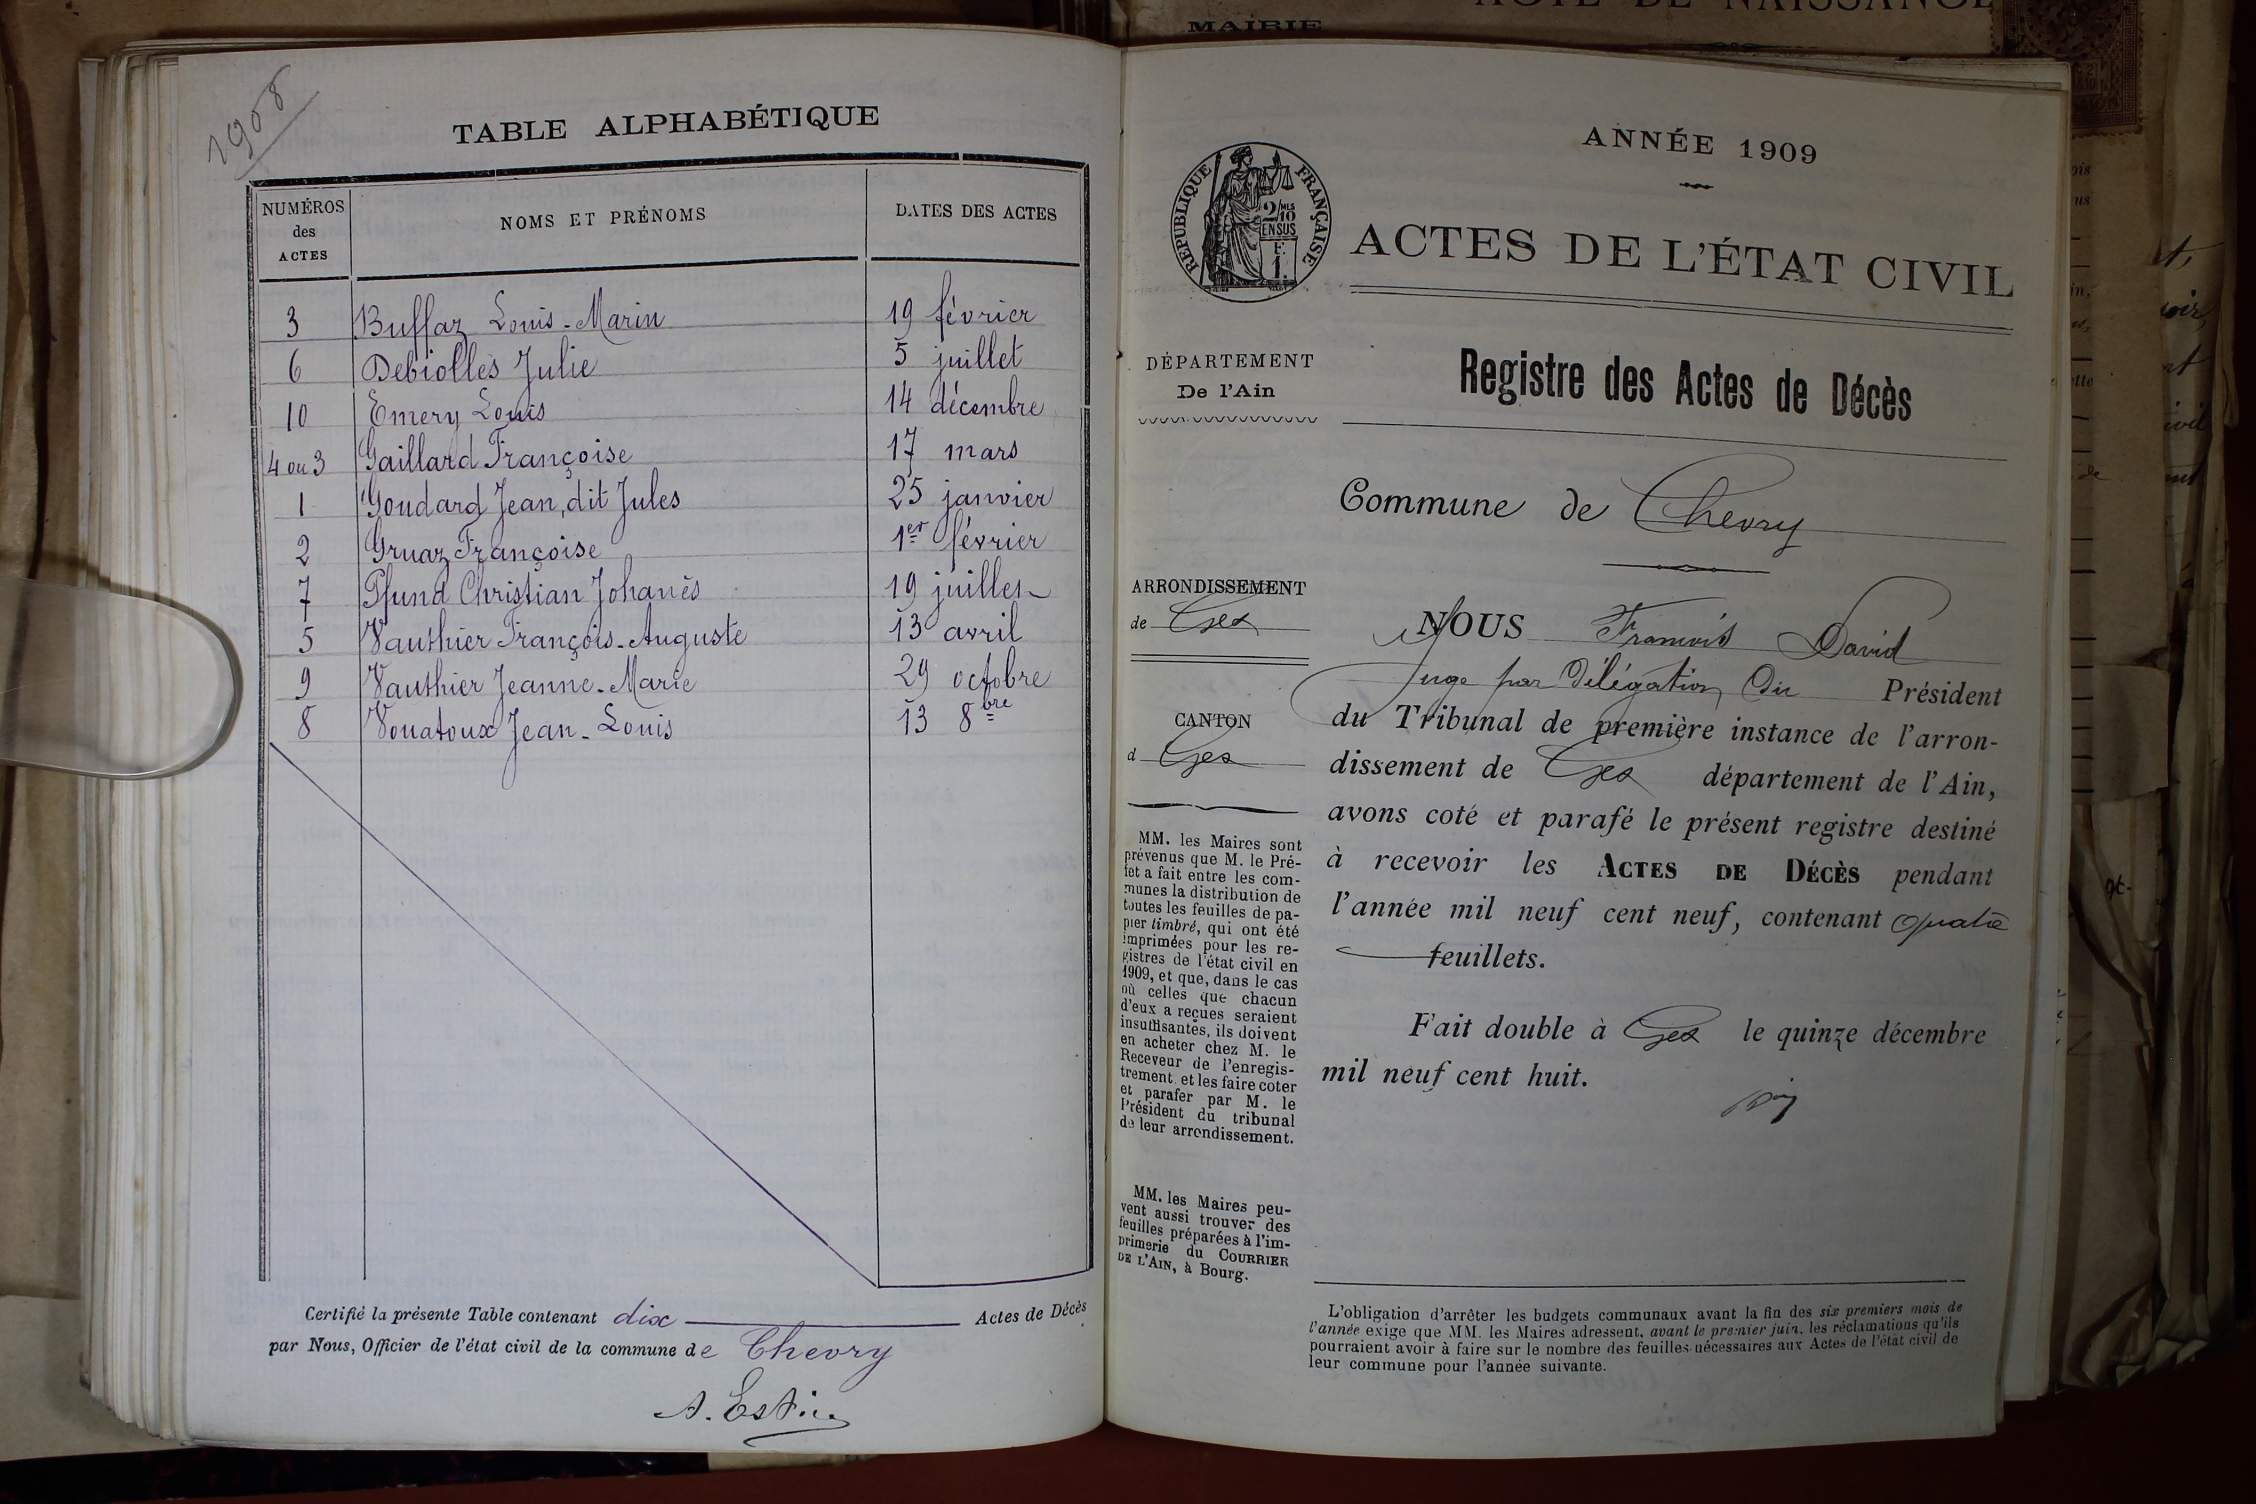 1908
TABLE ALPHABÉTIQUE
NUMÉROS des ACTES
NOMS ET PRÉNOMS
DATES DES ACTES
3 Buffaz Louis-Marin 19 février
6 Debiolles Julie 5 juillet
10 Emery Louis 14 décembre
4 ou 3 Gaillard Françoise 17 mars
1 Goudard Jean, dit Jules 25 janvier
2 Gruaz Françoise 1er février
7 Pfund Christian Johanès 19 juillet
5 Vauthier François-Auguste 13 avril
9 Vauthier Jeanne-Marie 29 octobre
8 Vouatoux Jean-Louis 13 8bre
Certifié la présente Table contenant dix Actes de Décès
par Nous, Officier de l'état civil de la commune de Chevry
A. Estin
MAIRIE
ACTE DE NAISSANCE
ANNÉE 1909
RÉPUBLIQUE FRANÇAISE
2/10
EN SUS
E.
1.
ACTES DE L'ÉTAT CIVIL
DÉPARTEMENT
De l'Ain
Registre des Actes de Décès
Commune de Chevry
ARRONDISSEMENT
de Gex
CANTON
d Gex
MM. les Maires sont
prévenus que M. le Pré-
fet a fait entre les com-
munes la distribution de
toutes les feuilles de pa-
pier timbré, qui ont été
imprimées pour les re-
gistres de l'état civil en
1909, et que, dans le cas
où celles que chacun
d'eux a reçues seraient
insuffisantes, ils doivent
en acheter chez M. le
Receveur de l'enregis-
trement et les faire coter
et parafer par M. le
Président du tribunal
de leur arrondissement.
MM. les Maires peu-
vent aussi trouver des
feuilles préparées à l'im-
primerie du COURRIER
DE L'AIN, à Bourg.
NOUS David
Juge par Délégation du Président
du Tribunal de première instance de l'arron-
dissement de Gex département de l'Ain,
avons coté et parafé le présent registre destiné
à recevoir les ACTES DE DÉCÈS pendant
l'année mil neuf cent neuf, contenant quatre
feuillets.
Fait double à Gex le quinze décembre
mil neuf cent huit.
L'obligation d'arrêter les budgets communaux avant la fin des six premiers mois de
l'année exige que MM. les Maires adressent, avant le premier juin, les réclamations qu'ils
pourraient avoir à faire sur le nombre des feuilles nécessaires aux Actes de l'état civil de
leur commune pour l'année suivante.